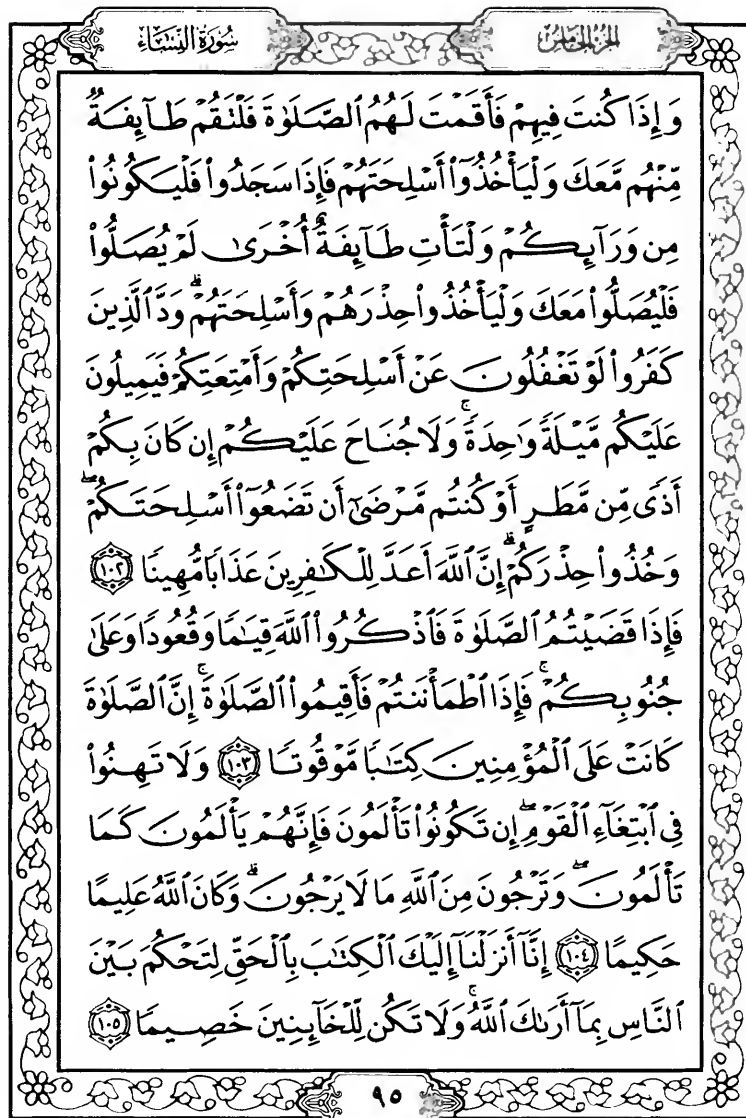 سُورَةُ النِّسَاءِ
الجُزْءُ الخَامِسُ
وَإِذَا كُنتَ فِيهِمْ فَأَقَمْتَ لَهُمُ ٱلصَّلَوٰةَ فَلْتَقُمْ طَآئِفَةٌ
مِّنْهُم مَّعَكَ وَلْيَأْخُذُوٓاْ أَسْلِحَتَهُمْ فَإِذَا سَجَدُواْ فَلْيَكُونُواْ
مِن وَرَآئِكُمْ وَلْتَأْتِ طَآئِفَةٌ أُخْرَىٰ لَمْ يُصَلُّواْ
فَلْيُصَلُّواْ مَعَكَ وَلْيَأْخُذُواْ حِذْرَهُمْ وَأَسْلِحَتَهُمْ ۗ وَدَّ ٱلَّذِينَ
كَفَرُواْ لَوْ تَغْفُلُونَ عَنْ أَسْلِحَتِكُمْ وَأَمْتِعَتِكُمْ فَيَمِيلُونَ
عَلَيْكُم مَّيْلَةً وَٰحِدَةً ۚ وَلَا جُنَاحَ عَلَيْكُمْ إِن كَانَ بِكُمْ
أَذًى مِّن مَّطَرٍ أَوْ كُنتُم مَّرْضَىٰٓ أَن تَضَعُوٓاْ أَسْلِحَتَكُمْ ۖ
وَخُذُواْ حِذْرَكُمْ ۗ إِنَّ ٱللَّهَ أَعَدَّ لِلْكَٰفِرِينَ عَذَابًا مُّهِينًا ١٠٢
فَإِذَا قَضَيْتُمُ ٱلصَّلَوٰةَ فَٱذْكُرُواْ ٱللَّهَ قِيَٰمًا وَقُعُودًا وَعَلَىٰ
جُنُوبِكُمْ ۚ فَإِذَا ٱطْمَأْنَنتُمْ فَأَقِيمُواْ ٱلصَّلَوٰةَ ۚ إِنَّ ٱلصَّلَوٰةَ
كَانَتْ عَلَى ٱلْمُؤْمِنِينَ كِتَٰبًا مَّوْقُوتًا ١٠٣ وَلَا تَهِنُواْ
فِى ٱبْتِغَآءِ ٱلْقَوْمِ ۖ إِن تَكُونُواْ تَأْلَمُونَ فَإِنَّهُمْ يَأْلَمُونَ كَمَا
تَأْلَمُونَ ۖ وَتَرْجُونَ مِنَ ٱللَّهِ مَا لَا يَرْجُونَ ۗ وَكَانَ ٱللَّهُ عَلِيمًا
حَكِيمًا ١٠٤ إِنَّآ أَنزَلْنَآ إِلَيْكَ ٱلْكِتَٰبَ بِٱلْحَقِّ لِتَحْكُمَ بَيْنَ
ٱلنَّاسِ بِمَآ أَرَىٰكَ ٱللَّهُ ۚ وَلَا تَكُن لِّلْخَآئِنِينَ خَصِيمًا ١٠٥
٩٥